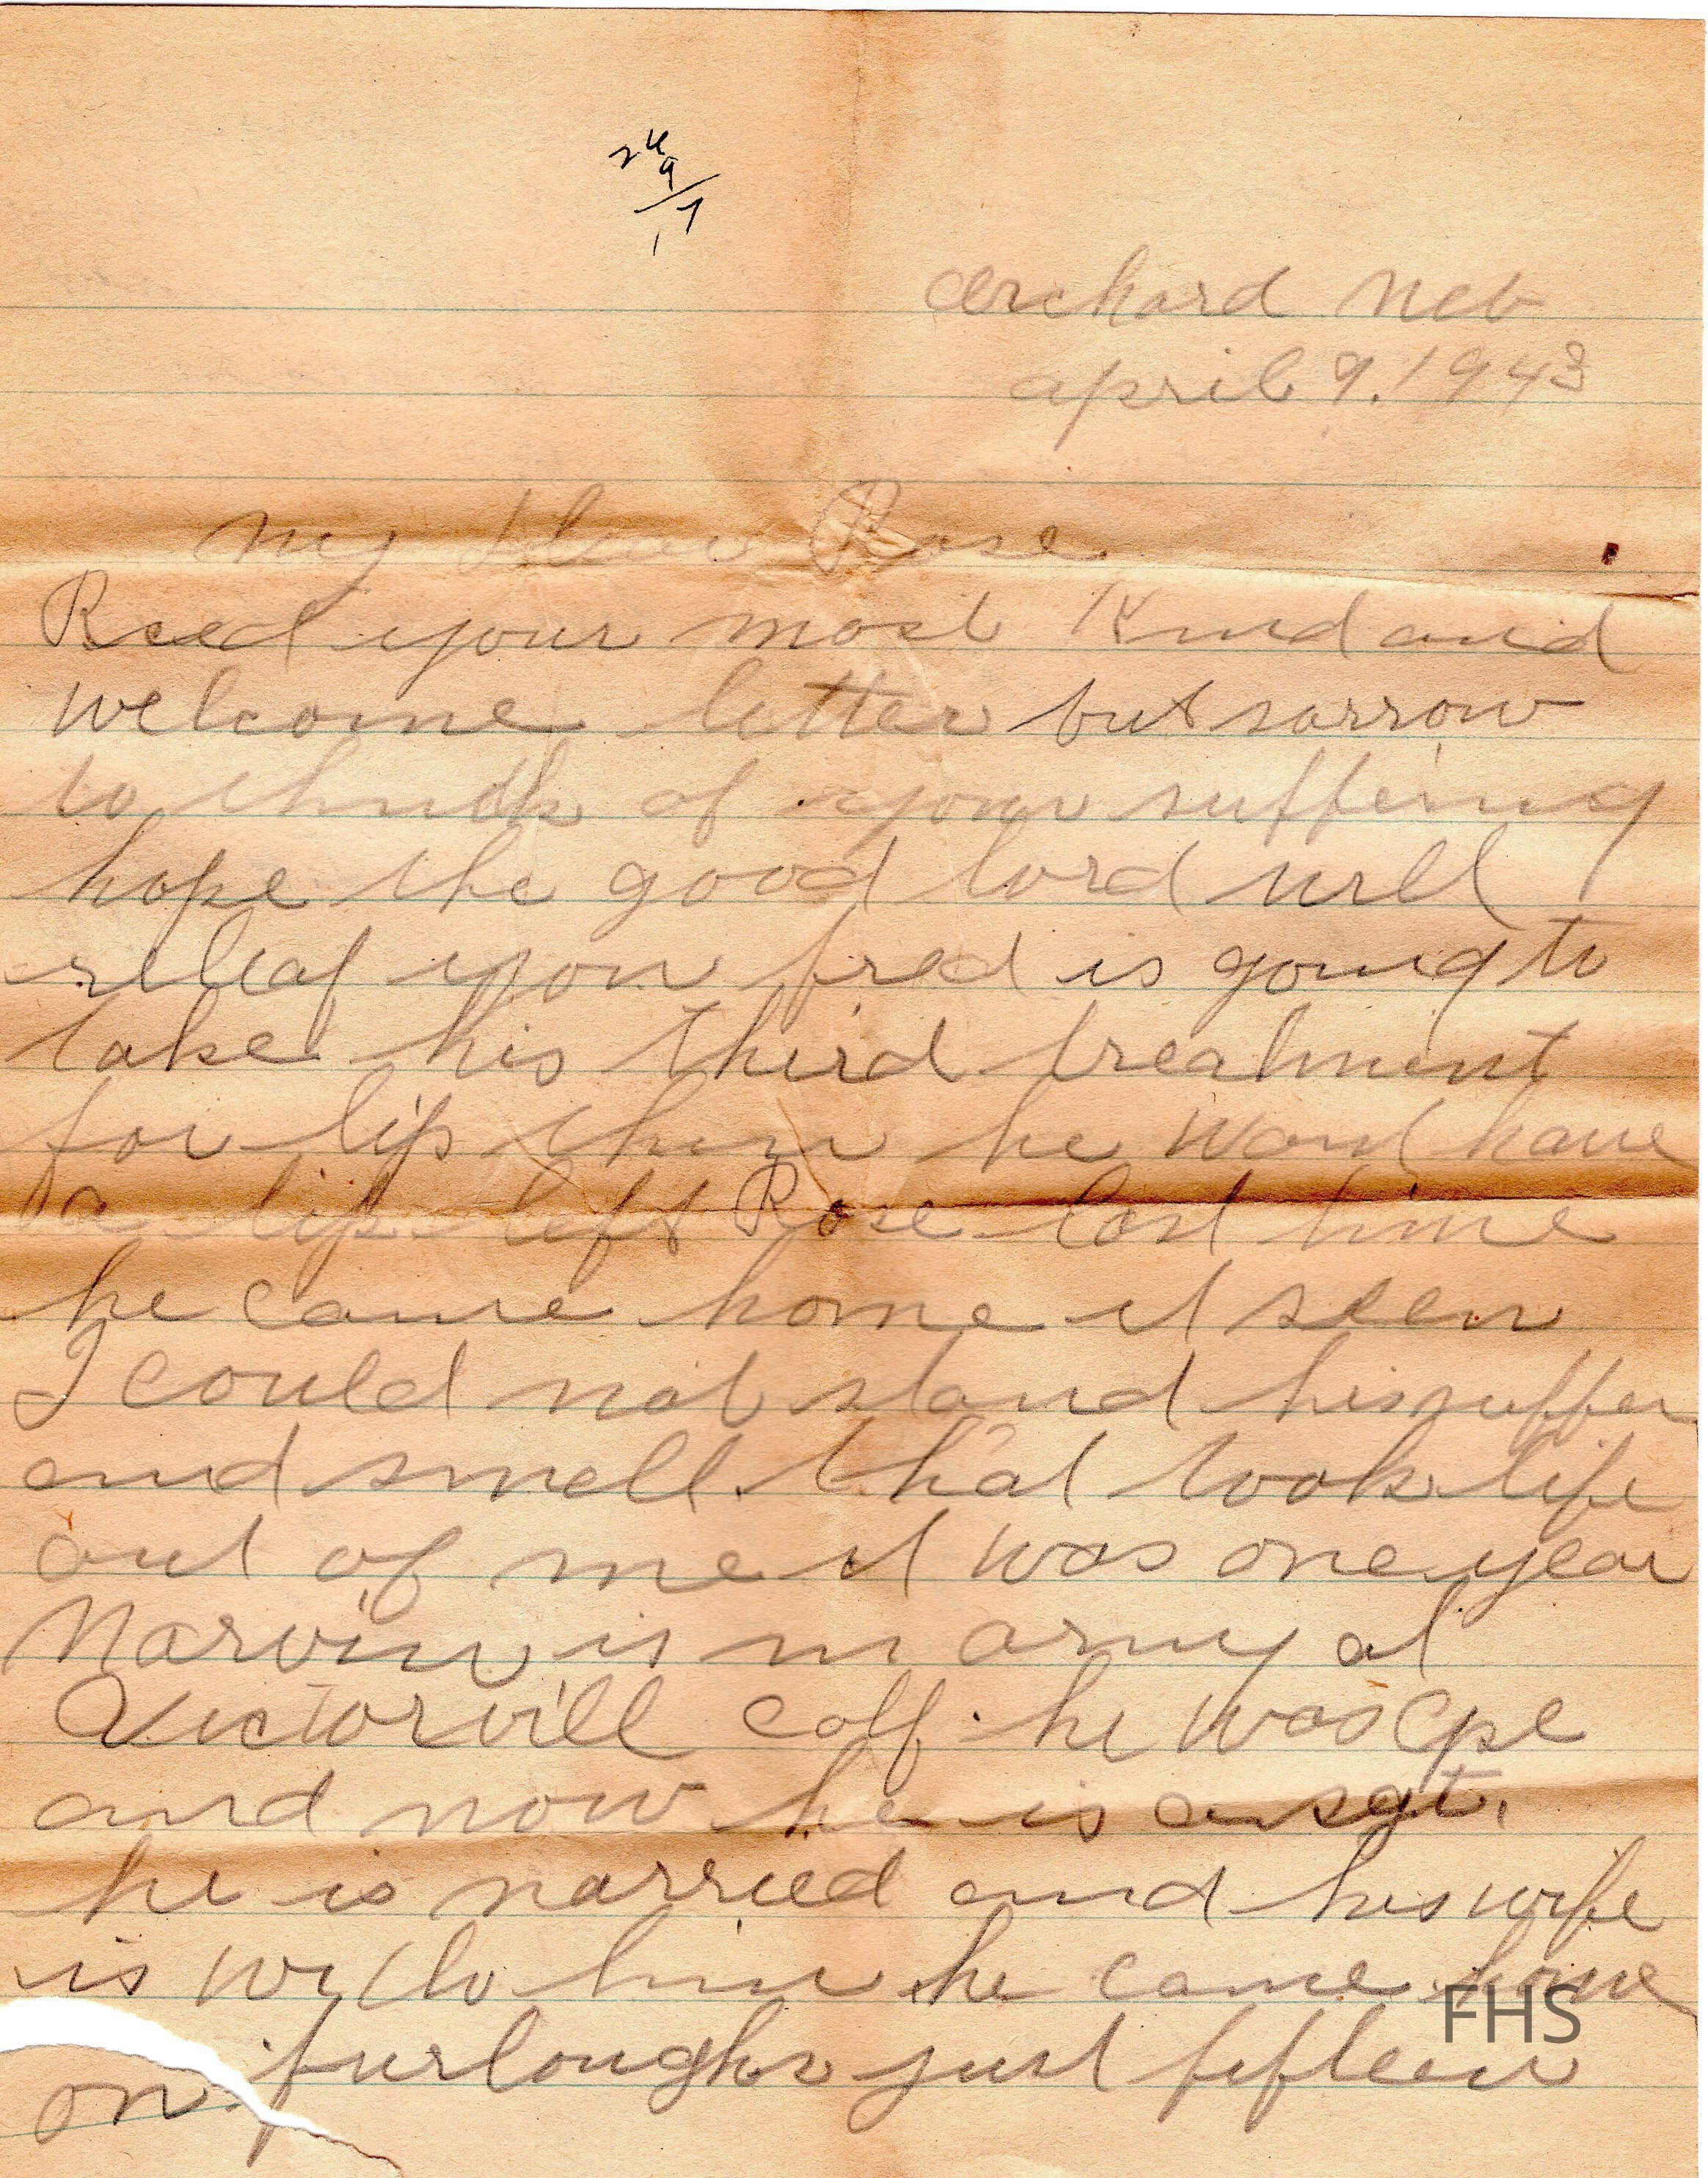 24
9
17
Orchard Neb
april 9. 1943
my dear Rose
Recd your most Kind and
welcome letter but sorrow
to think of your suffering
hope the good lord will
releaf you fred is going to
take his third treatment
for lip then he wont have
a lip left Rose last time
he came home it seem
I could not stand his suffer
and smell that took life
out of me it was one year
Marvin is in army at
Victorvill Calf. he was Cpl
and now he is a sgt.
he is narried and his wife
is with him he came home
on furlough just fifteen
FHS